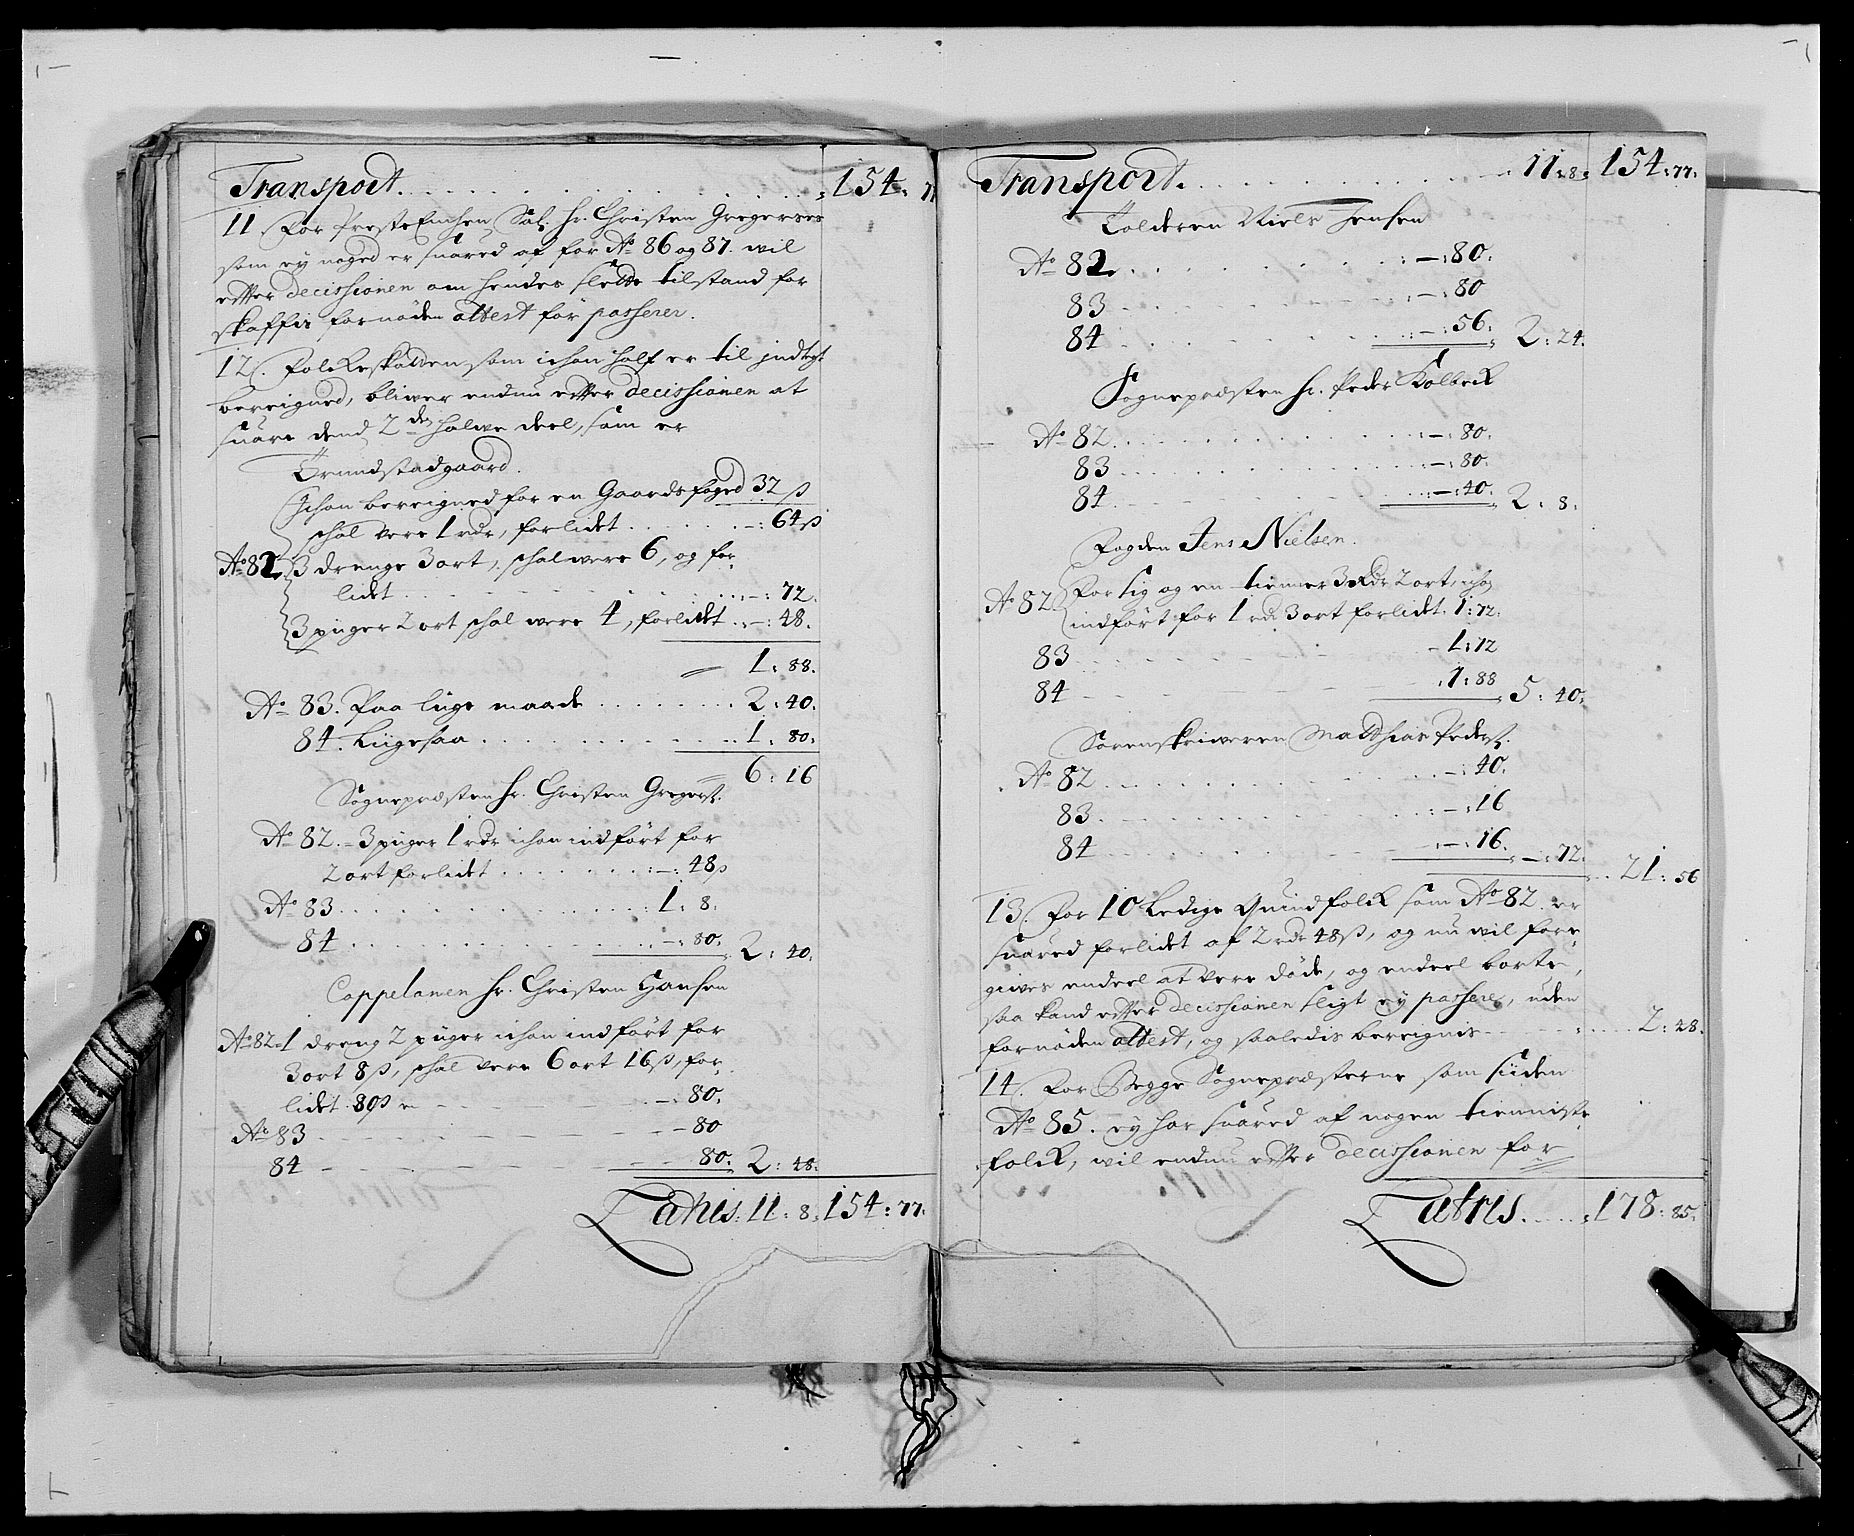 Transport. . . . . . 154: 77
11. For PresteEnchen Sal. Hr. Christen Gregerses
som ey noged er suared af for Ao 86 og 87. wil
efter decissionen om hendes slette tilstand for
skaffis fornöden attest för passerer.
12. FolcKeskatten som ichon half er til jndtegt
bereigned, bliwer endnu efter decissionen at
suare dend 2den halwe deel, som er
Trundstadgaard.
Ichon bereigned for en Gaardsfoged 32 ß
schal vere 1 rdr, forlidet . . . . . – : 64 ß
Ao 82. 3 drenge 3 ort, schal were 6, og for
lidet . . . . . – : 72.
3 piiger 2 ort schal were 4, forlidet . . – : 48.
1 : 88.
Ao 83. Paa liige maade . . . . . 2 : 40.
84. Liigesaa . . . . . 1 : 80.
6 : 16
Sognepræsten Hr. Christen Gregers.
Ao 82. – 3 piiger 1 rdr ichon indfört for
2 ort forlidet . . . . . – : 48 ß
Ao 83. . . . . 1 : 8.
84 . . . . . – : 80. 2 : 40.
Cappelanen Hr. Christen Hansen
Ao 82 – 1 dreng 2 piiger ichon indfört for
3 ort 8 ß, schal vere 6 ort 16 ß, for
lidet 80 ß – : 80.
Ao 83 – – – 80
84 – – – 80. 2 : 48.
Latris : 11 : 8. 154 : 77.
Transport. . . . . . 11 : 8. 154 : 77.
Tolderen Niels Jensen
Ao 82. . . . . – : 80.
83 . . . . – : 80
84 . . . . – : 56. 2 : 24.
Sognepræsten Hr. Peder Kolbeck
Ao 82. . . . . – : 80.
83 . . . . – : 80.
84 . . . . – : 40. 2 : 8.
Fogden Jens Nielsen.
Ao 82 For sig og en tienner 3 rdr 2 ort, ichon
indfört for 1 rdr 3 ort forlidet. 1 : 72.
83 . . . . 1 : 72
84 . . . . 1 : 88 5 : 40.
Sorenskriweren Matthias Peders.
Ao 82 . . . . – : 40.
83 . . . . – : 16
84 . . . . – : 16. – : 72. 21 : 56
13. For 10 Ledige Quindfolck som Ao 82. er
suared forlidet af 2 rdr 48 ß, og nu wil fore
giwes endeel at vere döde, og endeel borte,
saa kand efter decissionen sligt ey passere, uden
fornöden attest, og saaledis bereignis . . . 2 : 48.
14. For Begge Sognepræsterne som siiden
Ao 85. ey har suared af nogen tienniste
folck, wil endnu efter decissionen for
Latris. . . . 178 : 85.